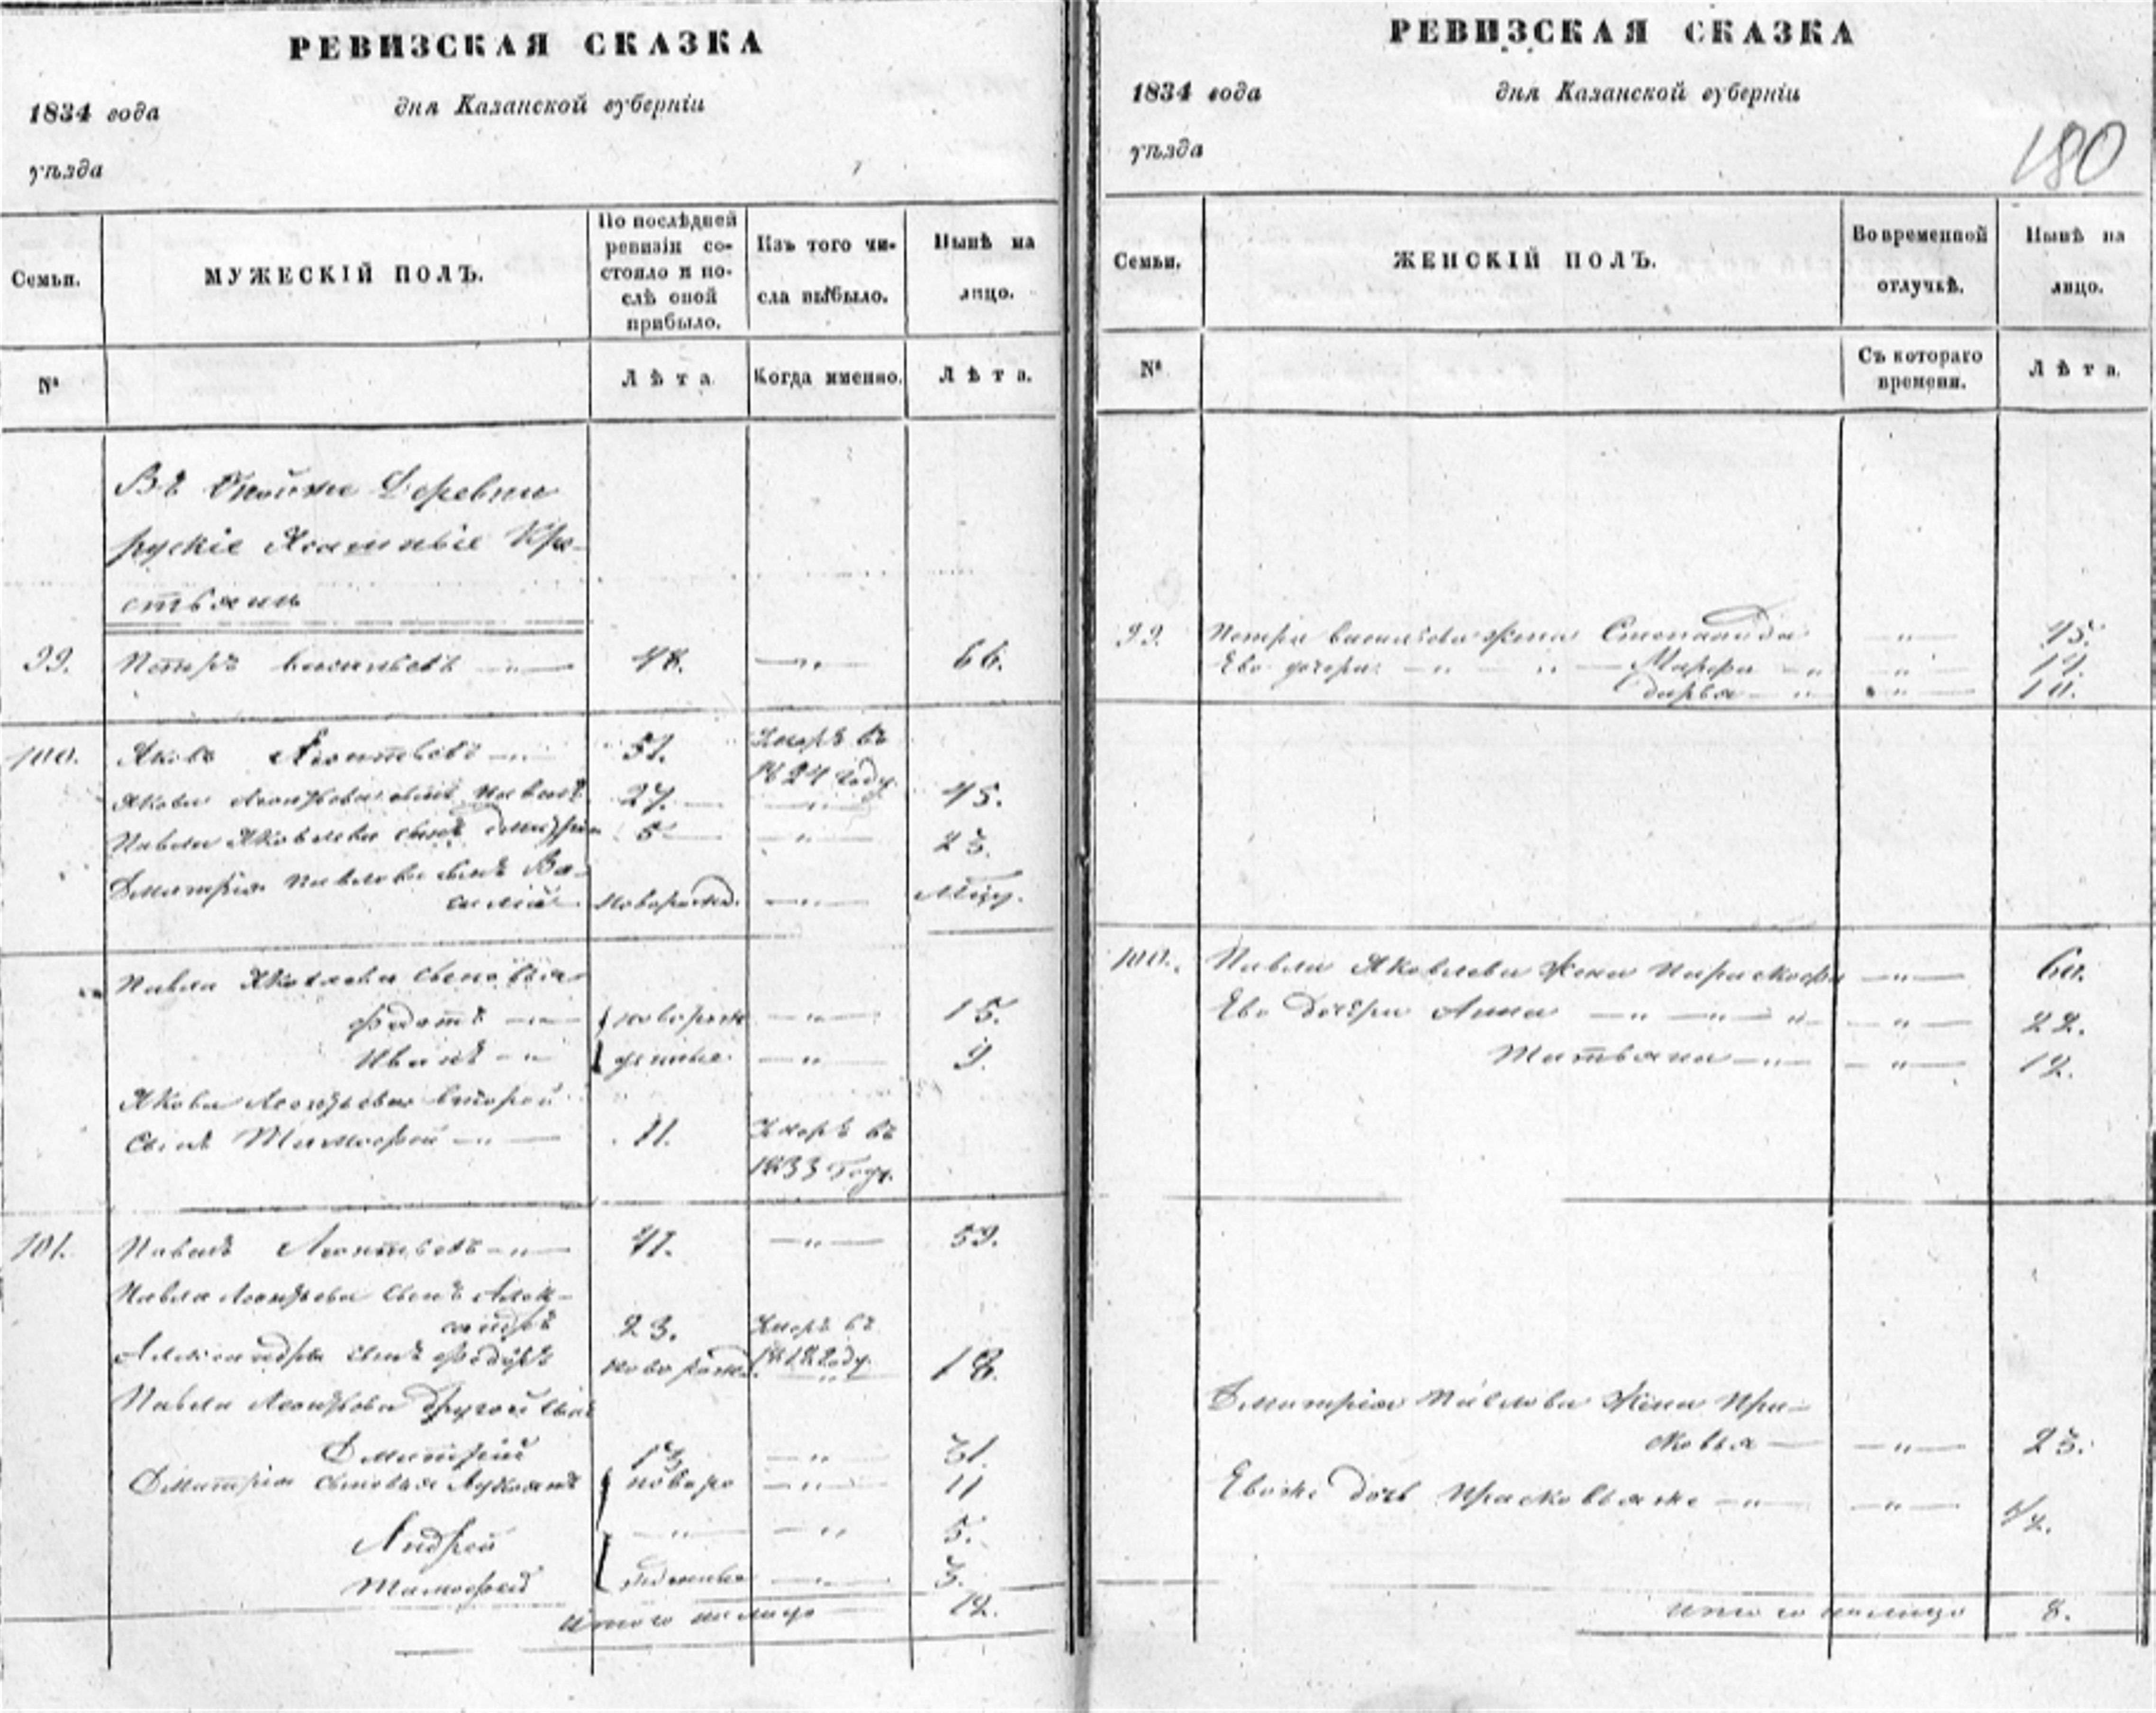 РЕВИЗСКАЯ СКАЗКА
1834 года дня Казанской губерніи
уѣзда
Семьи.
МУЖЕСКІЙ ПОЛЪ.
По послѣдней
ревизіи со-
стояло и по-
слѣ оной
прибыло.
Изъ того чи-
сла выбыло.
Нынѣ на
лицо.
№
Лѣта.
Когда именно.
Лѣта.
Въ Деревни
руские Ясашные Кре-
стьяни
99. Петръ Васильевъ 48. 66.
100. Яковъ Леонтьевъ 51. Умеръ въ
1824 году.
Якова Леонтьева сынъ Павелъ 27. 45.
Павла Яковлева сынъ Дмитрий 5 23.
Дмитрія Павлова сынъ Ва-
силій новорожд.
Павла Яковлева сыновья
Федотъ новорож 15.
Иванъ денные 9.
Якова Леонтьева второй
Сынъ Тимофей 11. Умеръ въ
1833 Году.
101. Павелъ Леонтьевъ 41. 59.
Павла Леонтьева сынъ Алек-
сандръ 23. Умеръ въ
Александра сынъ Федоръ новорожд. 18.
Павла Леонтьева другой сынъ
Дмитрій 13 31.
Дмитрія сыновья новоро 11
Андрей 5.
Тимофей жденные 3.
Итого на лицо 12.
РЕВИЗСКАЯ СКАЗКА
1834 года дня Казанской губерніи
уѣзда
180
Семьи.
ЖЕНСКІЙ ПОЛЪ.
Во временной
отлучкѣ.
Нынѣ на
лицо.
№
Съ котораго
времени.
Лѣта.
99. Петра Васильева жена Степанида 45.
Ево дочери: Марфа 14.
Дарья 10.
100. Павла Яковлева жена Параскофья 60.
Ево дочери Анна 22.
Татьяна 12.
Дмитрія Павлова Жена Пра-
сковья 23.
Евоже дочь Прасковьяже 1/2.
Итого на лицо 8.